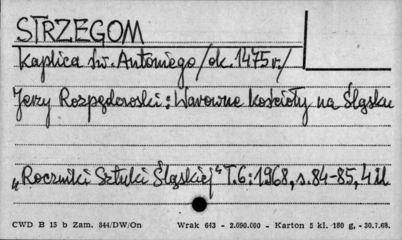 STRZEGOM
Kaplica św. Antoniego /ok. 1475 r./
Jerzy Rozpędowski: Warowne kościoły na Śląsku
„Roczniki Sztuki Śląskiej" T.6: 1968, s. 84-85, 4 il.
CWD B 15 b Zam. 844/DW/On Wrak 643 - 2.000.000 - Karton 5 kl. 180 g, - 30.7.68.